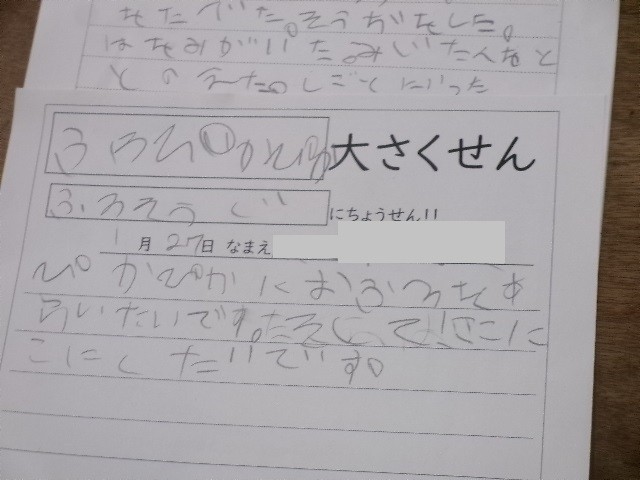 をたべた。そうじをした。
はをみがいたみじたくをと
とのえた。しごとにいった
ふろぴかぴか大さくせん
ふろそうじにちょうせん!!
1月27日 なまえ
ぴかぴかにおふろをあ
らいたいです。
こにしたいです。